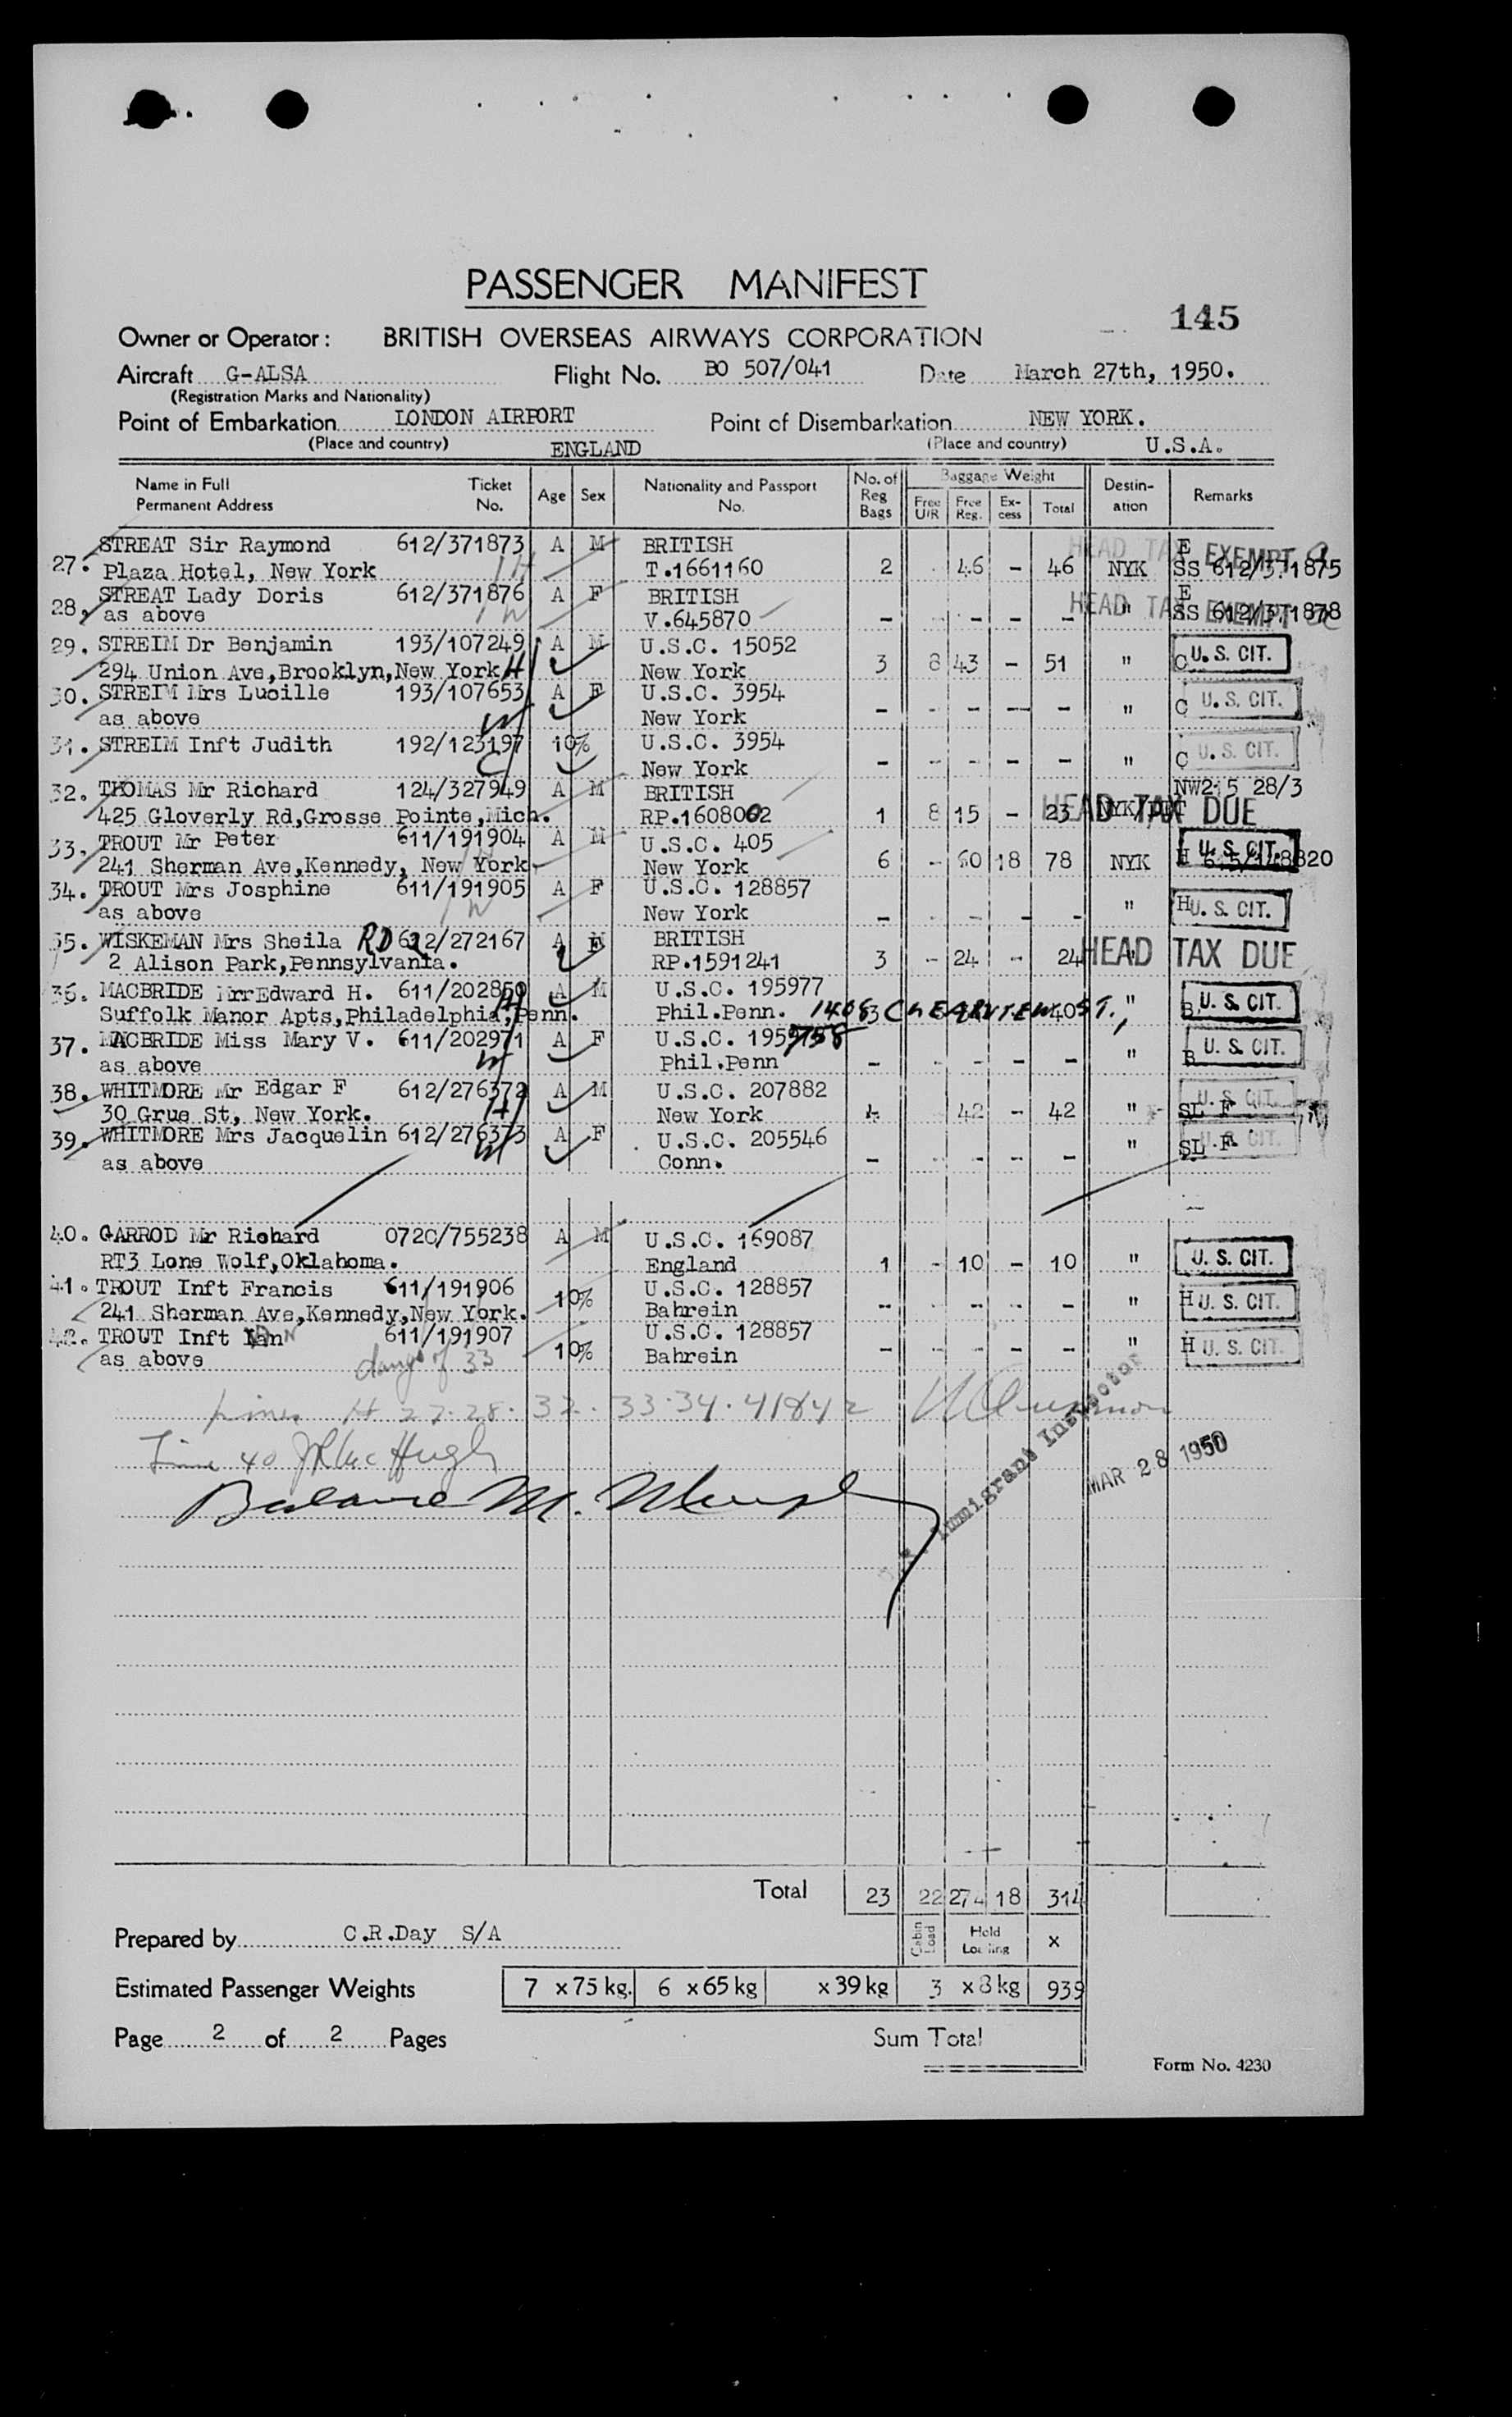 PASSENGER MANIFEST
145
Owner or Operator : BRITISH OVERSEAS AIRWAYS CORPORATION
Aircraft G-ALSA Flight No. BO 507/041 Date March 27th, 1950.
(Registration Marks and Nationality)
Point of Embarkation LONDON AIRPORT Point of Disembarkation NEW YORK.
(Place and country) ENGLAND (Place and country) U.S.A.
Name in Full Ticket Age Sex Nationality and Passport No. of Baggage Weight Destin- Remarks
Permanent Address No. No. Reg Free Free Ex- Total ation
Bags U/R Reg. cess
27. STREAT Sir Raymond 612/371873 A M BRITISH HEAD TAX EXEMPT E
Plaza Hotel, New York T.1661160 2 46 - 46 NYK SS 612/371875
28. STREAT Lady Doris 612/371876 A F BRITISH HEAD TAX EXEMPT E
as above V.645870 - - - - - " SS 612/371878
29. STREIM Dr Benjamin 193/107249 A M U.S.C. 15052
294 Union Ave,Brooklyn,New York H New York 3 8 43 - 51 " C U. S. CIT.
30. STREIM Mrs Lucille 193/107653 A F U.S.C. 3954
as above W New York - - - - - " C U. S. CIT.
31. STREIM Inft Judith 192/123197 10% U.S.C. 3954
C New York - - - - - " C U. S. CIT.
32. THOMAS Mr Richard 124/327949 A M BRITISH NW215 28/3
425 Gloverly Rd,Grosse Pointe,Mich. RP.1608002 1 8 15 - 23 HEAD TAX DUE
33. TROUT Mr Peter 611/191904 A M U.S.C. 405
241 Sherman Ave,Kennedy, New York New York 6 - 60 18 78 NYK H U. S. CIT.
34. TROUT Mrs Josphine 611/191905 A F U.S.C. 128857
as above W New York - - - - - " H U. S. CIT.
35. WISKEMAN Mrs Sheila RD 2 612/272167 A F BRITISH
2 Alison Park,Pennsylvania. RP.1591241 3 - 24 - 24 HEAD TAX DUE
36. MACBRIDE Mr Edward H. 611/202850 A M U.S.C. 195977
Suffolk Manor Apts,Philadelphia,Penn. H Phil.Penn. 1408 CLEARVIEW ST. 3 40 " B U. S. CIT.
37. MACBRIDE Miss Mary V. 611/202971 A F U.S.C. 195 758
as above W Phil.Penn - - - - - " B U. S. CIT.
38. WHITMORE Mr Edgar F 612/276372 A M U.S.C. 207882
30 Grue St, New York. H New York 4 42 - 42 " SL F U. S. CIT.
39. WHITMORE Mrs Jacquelin 612/276373 A F U.S.C. 205546
as above W Conn. - - - - - " SL F U. S. CIT.
40. GARROD Mr Richard 072C/755238 A M U.S.C. 169087
RT3 Lone Wolf,Oklahoma. England 1 - 10 - 10 " U. S. CIT.
41. TROUT Inft Francis 611/191906 10% U.S.C. 128857
241 Sherman Ave,Kennedy,New York. Bahrein - - - - - " H U. S. CIT.
42. TROUT Inft Ian 611/191907 10% U.S.C. 128857
as above Bahrein - - - - - " H U. S. CIT.
Lines H 27.28.32.33.34.41842
Line 40
Balance M.
Immigrant Inspector
MAR 28 1950
Total 23 22 274 18 314
Prepared by C.R.Day S/A Cabin Load Hold Loading x
Estimated Passenger Weights 7 x75 kg. 6 x65 kg x39 kg 3 x8 kg 939
Page 2 of 2 Pages Sum Total
Form No. 4230